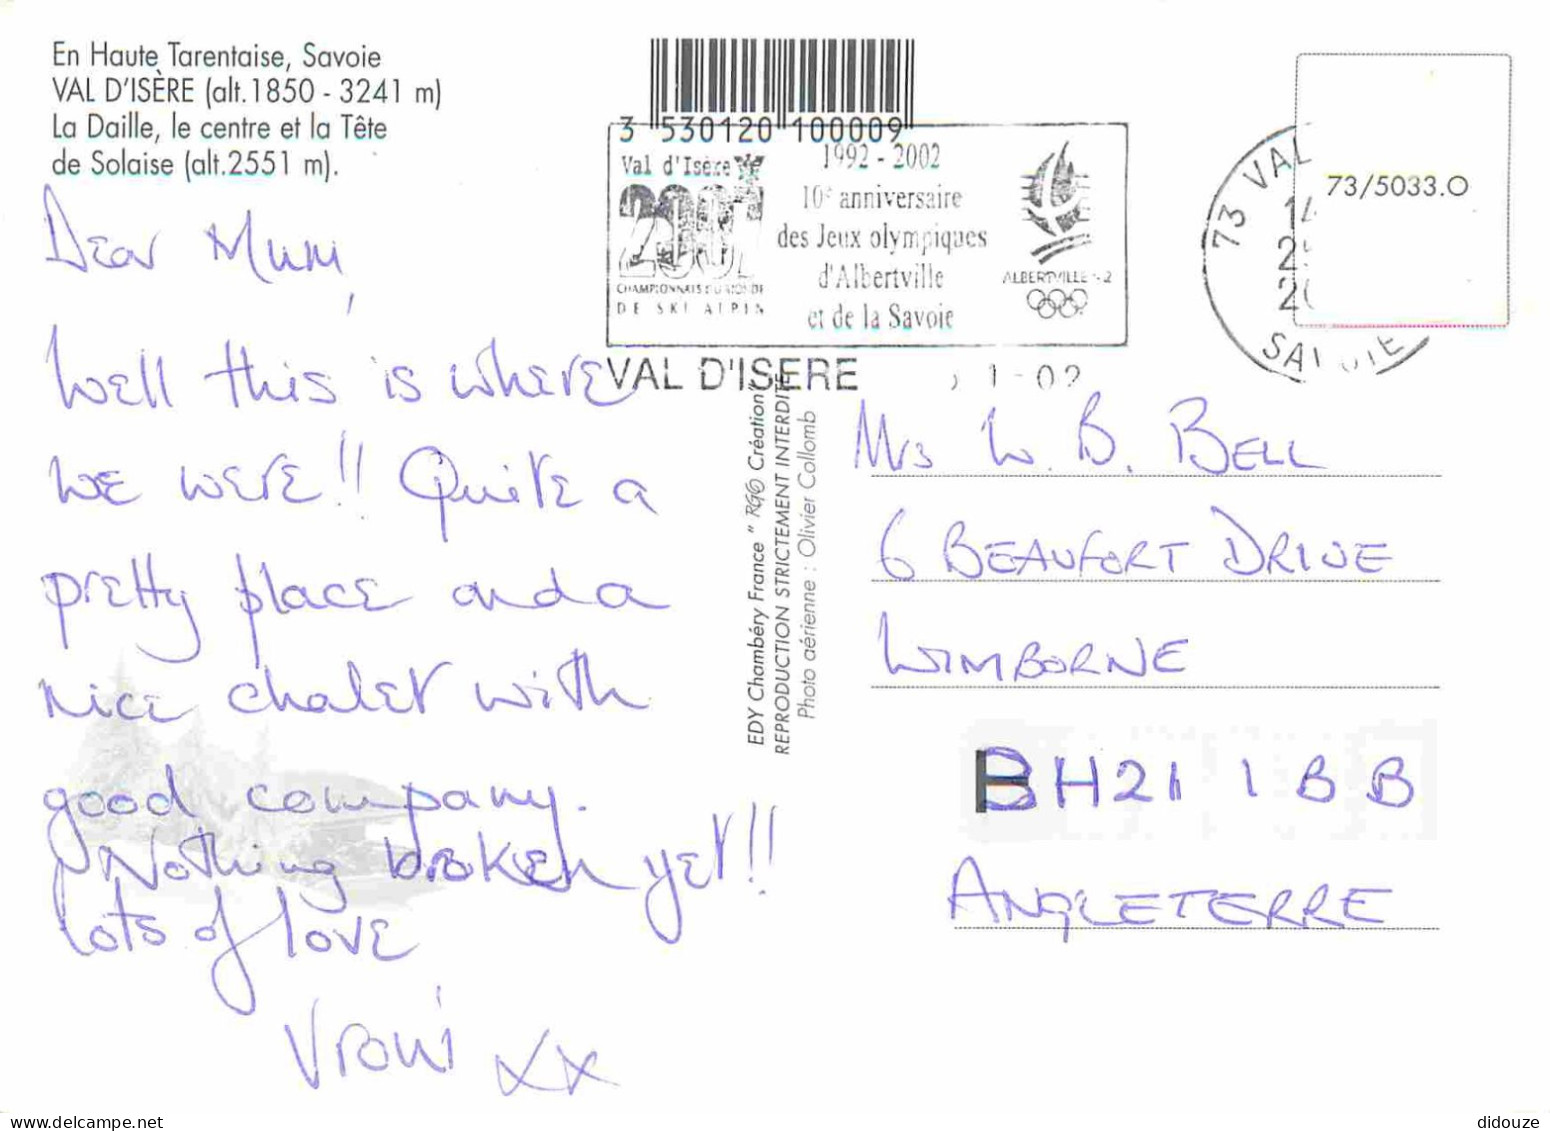 En Haute Tarentaise, Savoie
VAL D'ISÈRE (alt.1850 - 3241 m)
La Daille, le centre et la Tête
de Solaise (alt.2551 m).
3 530120 100009
Val d'Isère
CHAMPIONNATS DU MONDE
DE SKI ALPIN
1992 - 2002
10e anniversaire
des Jeux olympiques
d'Albertville
et de la Savoie
ALBERTVILLE
VAL D'ISERE
1-02
73 VAL
SAVOIE
73/5033.O
Dear Mum,
Well this is where
we were!! Quite a
pretty place and a
nice chalet with
good company.
Nothing broken yet!!
Lots of love
Vroni xx
EDY Chambéry France " RGO Création"
REPRODUCTION STRICTEMENT INTERDITE
Photo aérienne : Olivier Collomb
Mrs W. B. BELL
6 BEAUFORT DRIVE
WIMBORNE
BH21 1BB
ANGLETERRE
didouze